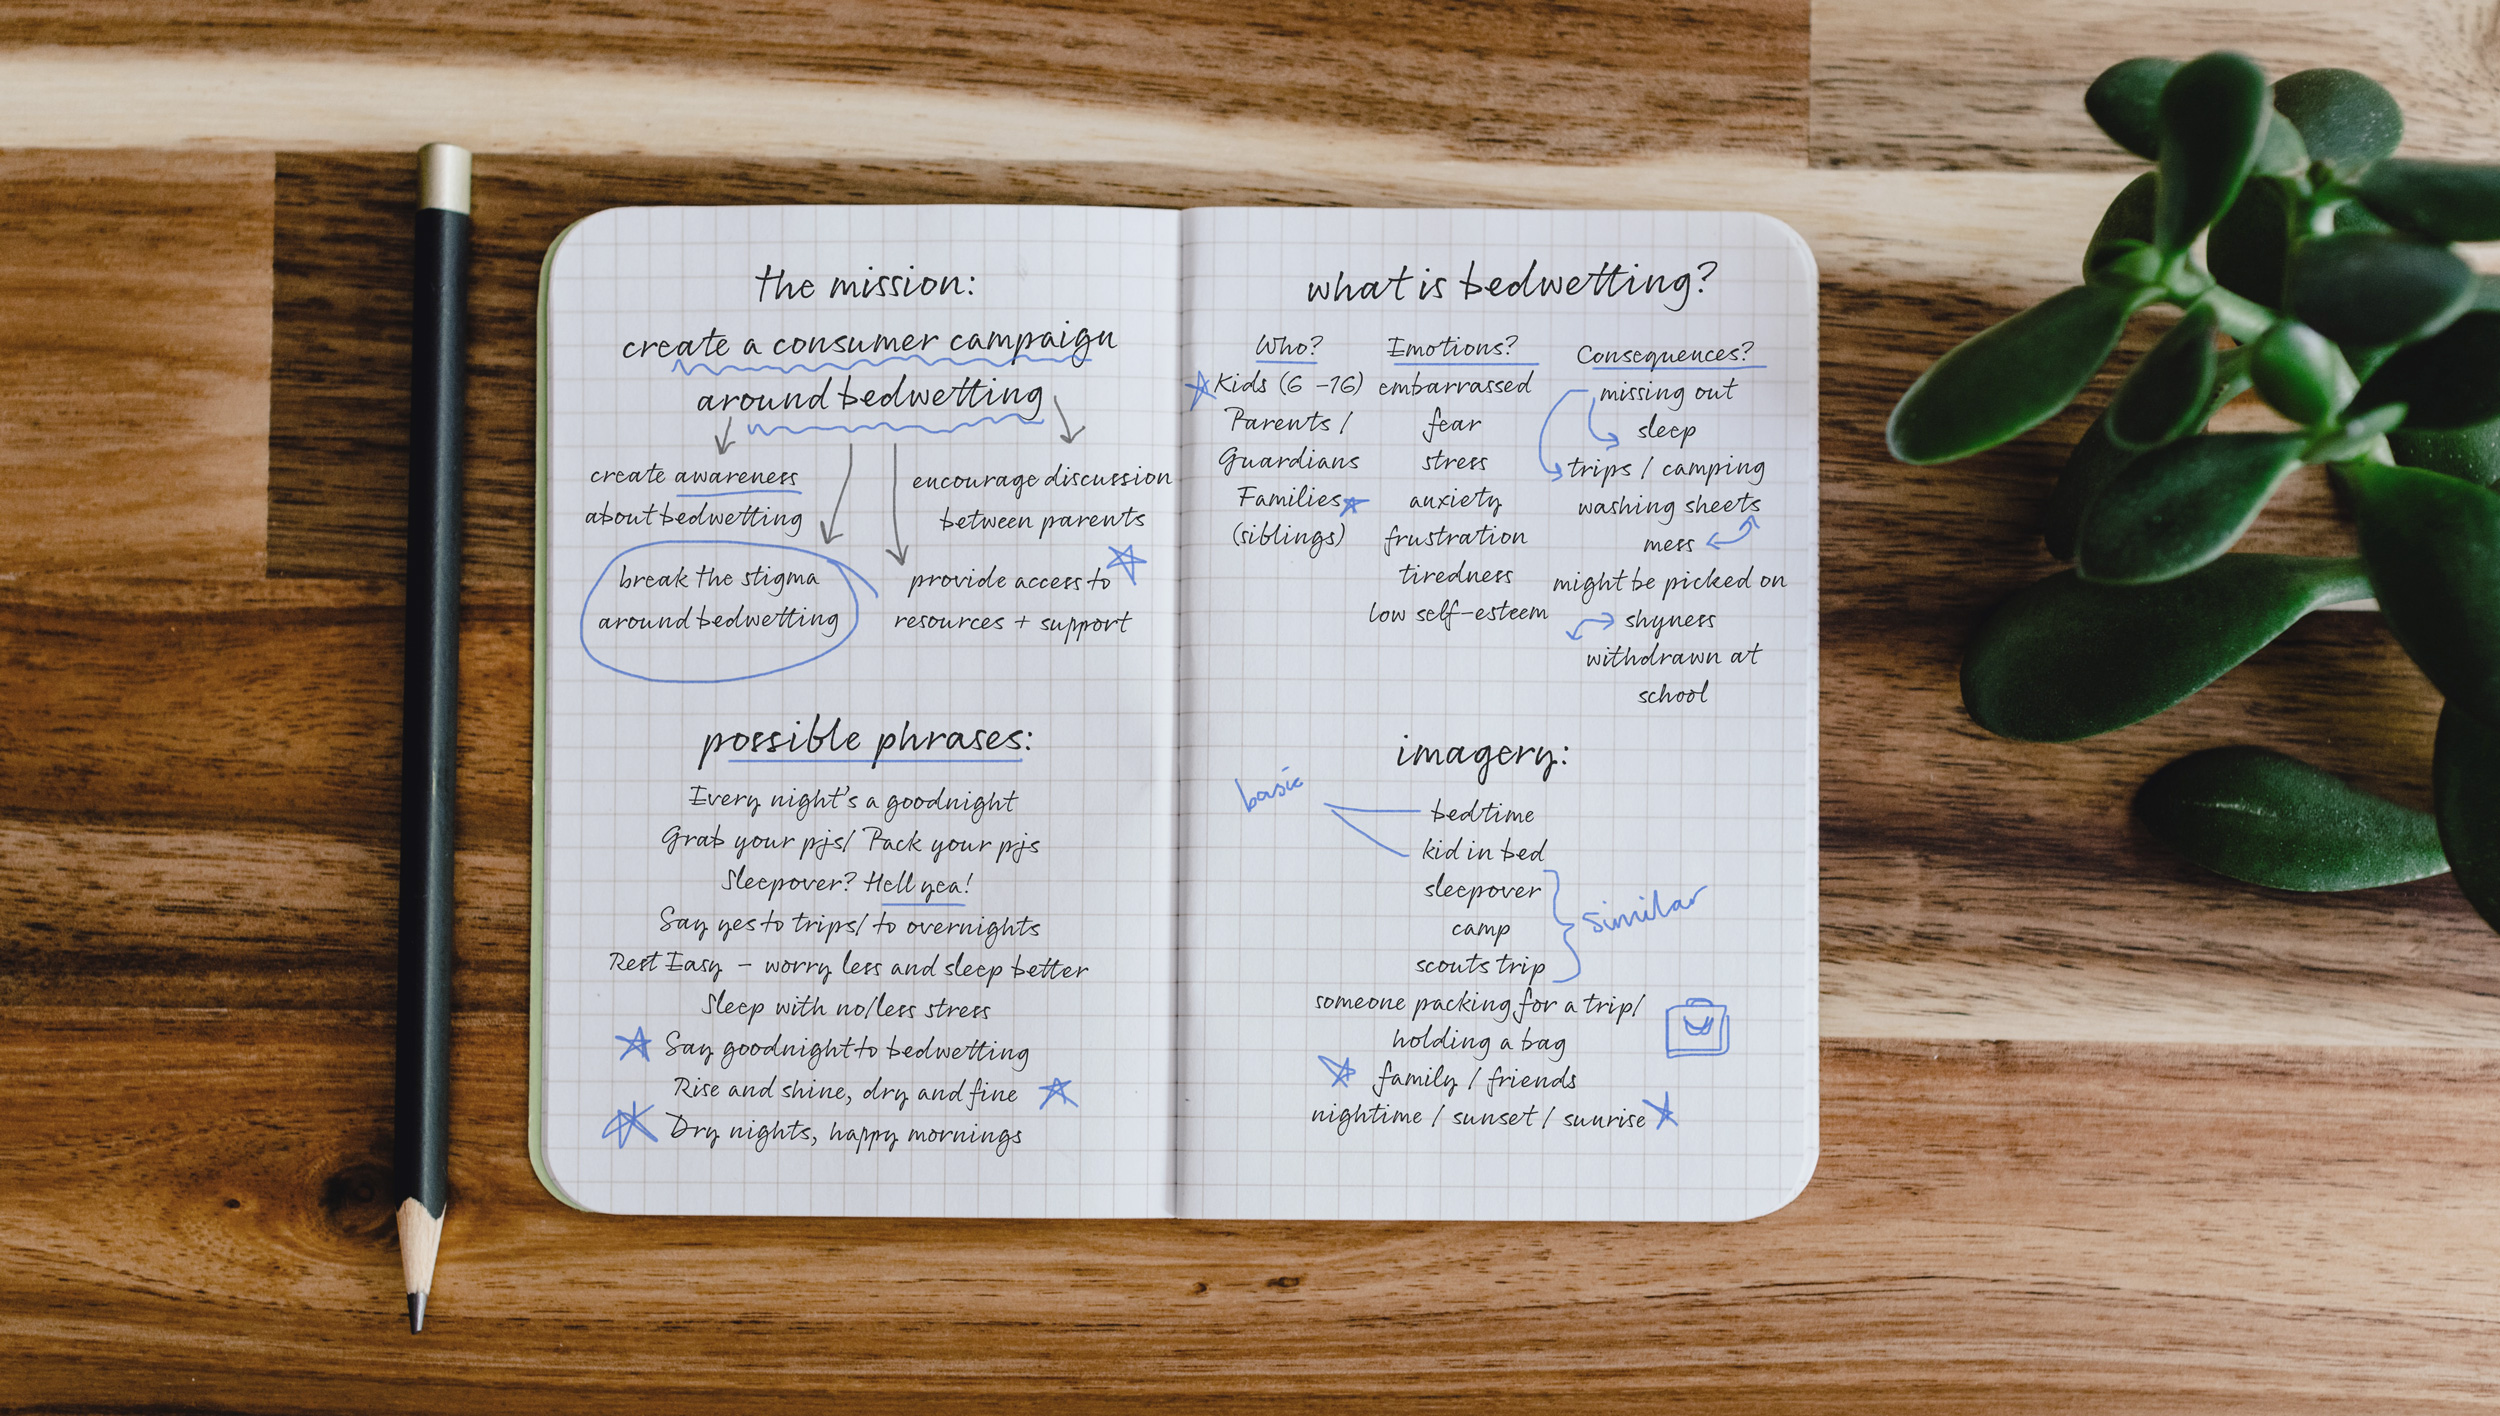 the mission:
create a consumer campaign
around bedwetting
create awareness
about bedwetting
encourage discussion
between parents
break the stigma
around bedwetting
provide access to
resources + support
possible phrases:
Every night's a goodnight
Grab your pjs/ Pack your pjs
Sleepover? Hell yea!
Say yes to trips/ to overnights
Rest Easy – worry less and sleep better
Sleep with no/less stress
Say goodnight to bedwetting
Rise and shine, dry and fine
Dry nights, happy mornings
what is bedwetting?
Who?
Kids (6 –16)
Parents /
Guardians
Families
(siblings)
Emotions?
embarrassed
fear
stress
anxiety
frustration
tiredness
low self-esteem
Consequences?
missing out
sleep
trips / camping
washing sheets
mess
might be picked on
shyness
withdrawn at
school
imagery:
basic
bedtime
kid in bed
sleepover
camp
scouts trip
similar
someone packing for a trip/
holding a bag
family / friends
nightime / sunset / sunrise